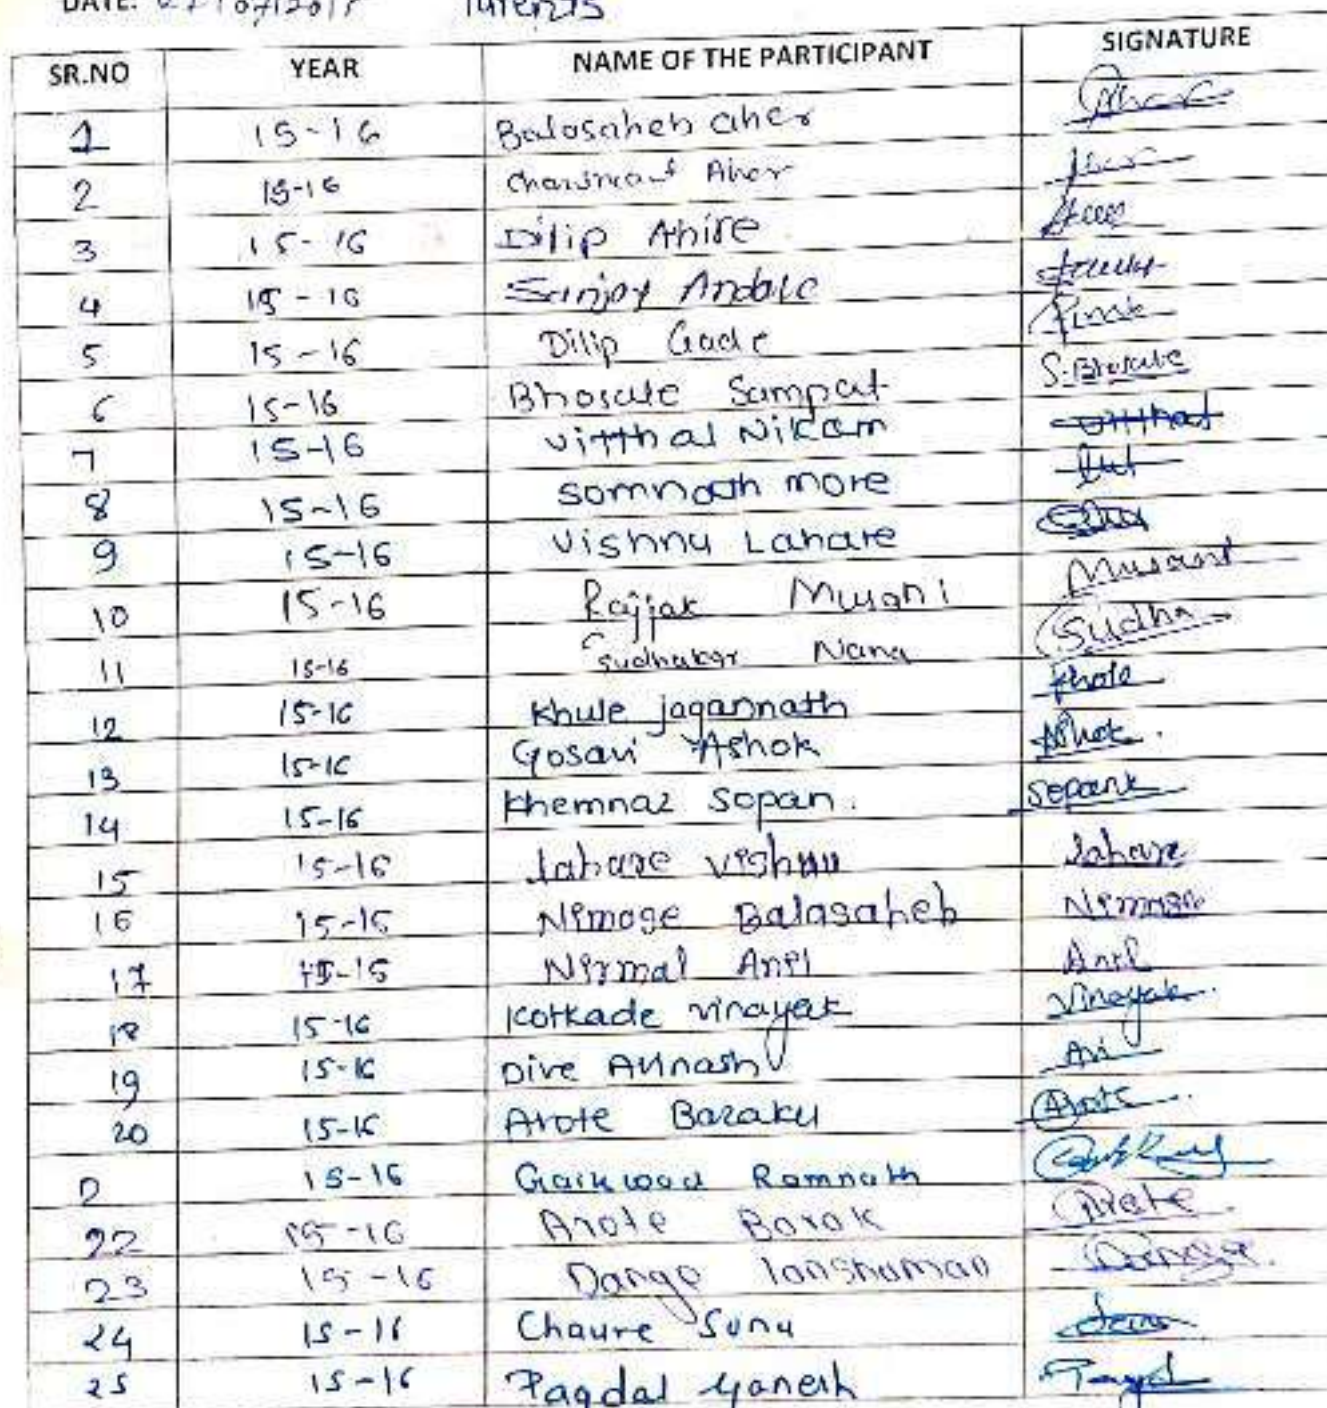 DATE:
SR.NO YEAR NAME OF THE PARTICIPANT SIGNATURE
1 15-16 Balasaheb aher
2 15-16 Aher
3 15-16 Dilip Ahire
4 15-16 Sanjay Andale
5 15-16 Dilip Gade
6 15-16 Bhosale Sampat S.Bhosale
7 15-16 vitthal Nikam vitthal
8 15-16 somnath more
9 15-16 vishnu Lahare
10 15-16 Rajjak Musani Musani
11 15-16 Sudhakar Nana Sudha
12 15-16 Khule jagannath
13 15-16 Gosavi Ashok Ashok.
14 15-16 Khemnar Sopan.
15 15-16 lahare vishnu lahare
16 15-15 Nimase Balasaheb Nimase
17 15-15 Nirmal Anil Anil
18 15-16 Kotkade vinayak vinayak.
19 15-16 Dive Avinash Avi
20 15-16 Arote Baraku Arote.
2 15-16 Gaikwad Ramnath
22 15-16 Arote Barak Arote.
23 15-16 Dange
24 15-16 Chaure Sunu
25 15-16 Pagdal Ganesh